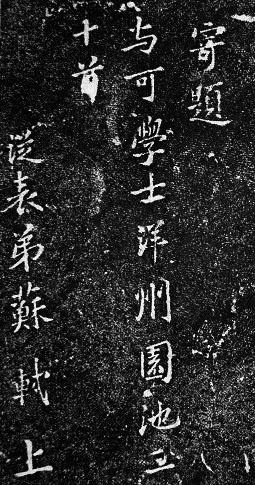 寄題
与可學士洋州園池三
十首
從表弟蘇軾上